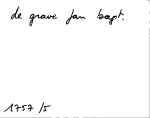 de grave Jan bapt.
1757/5